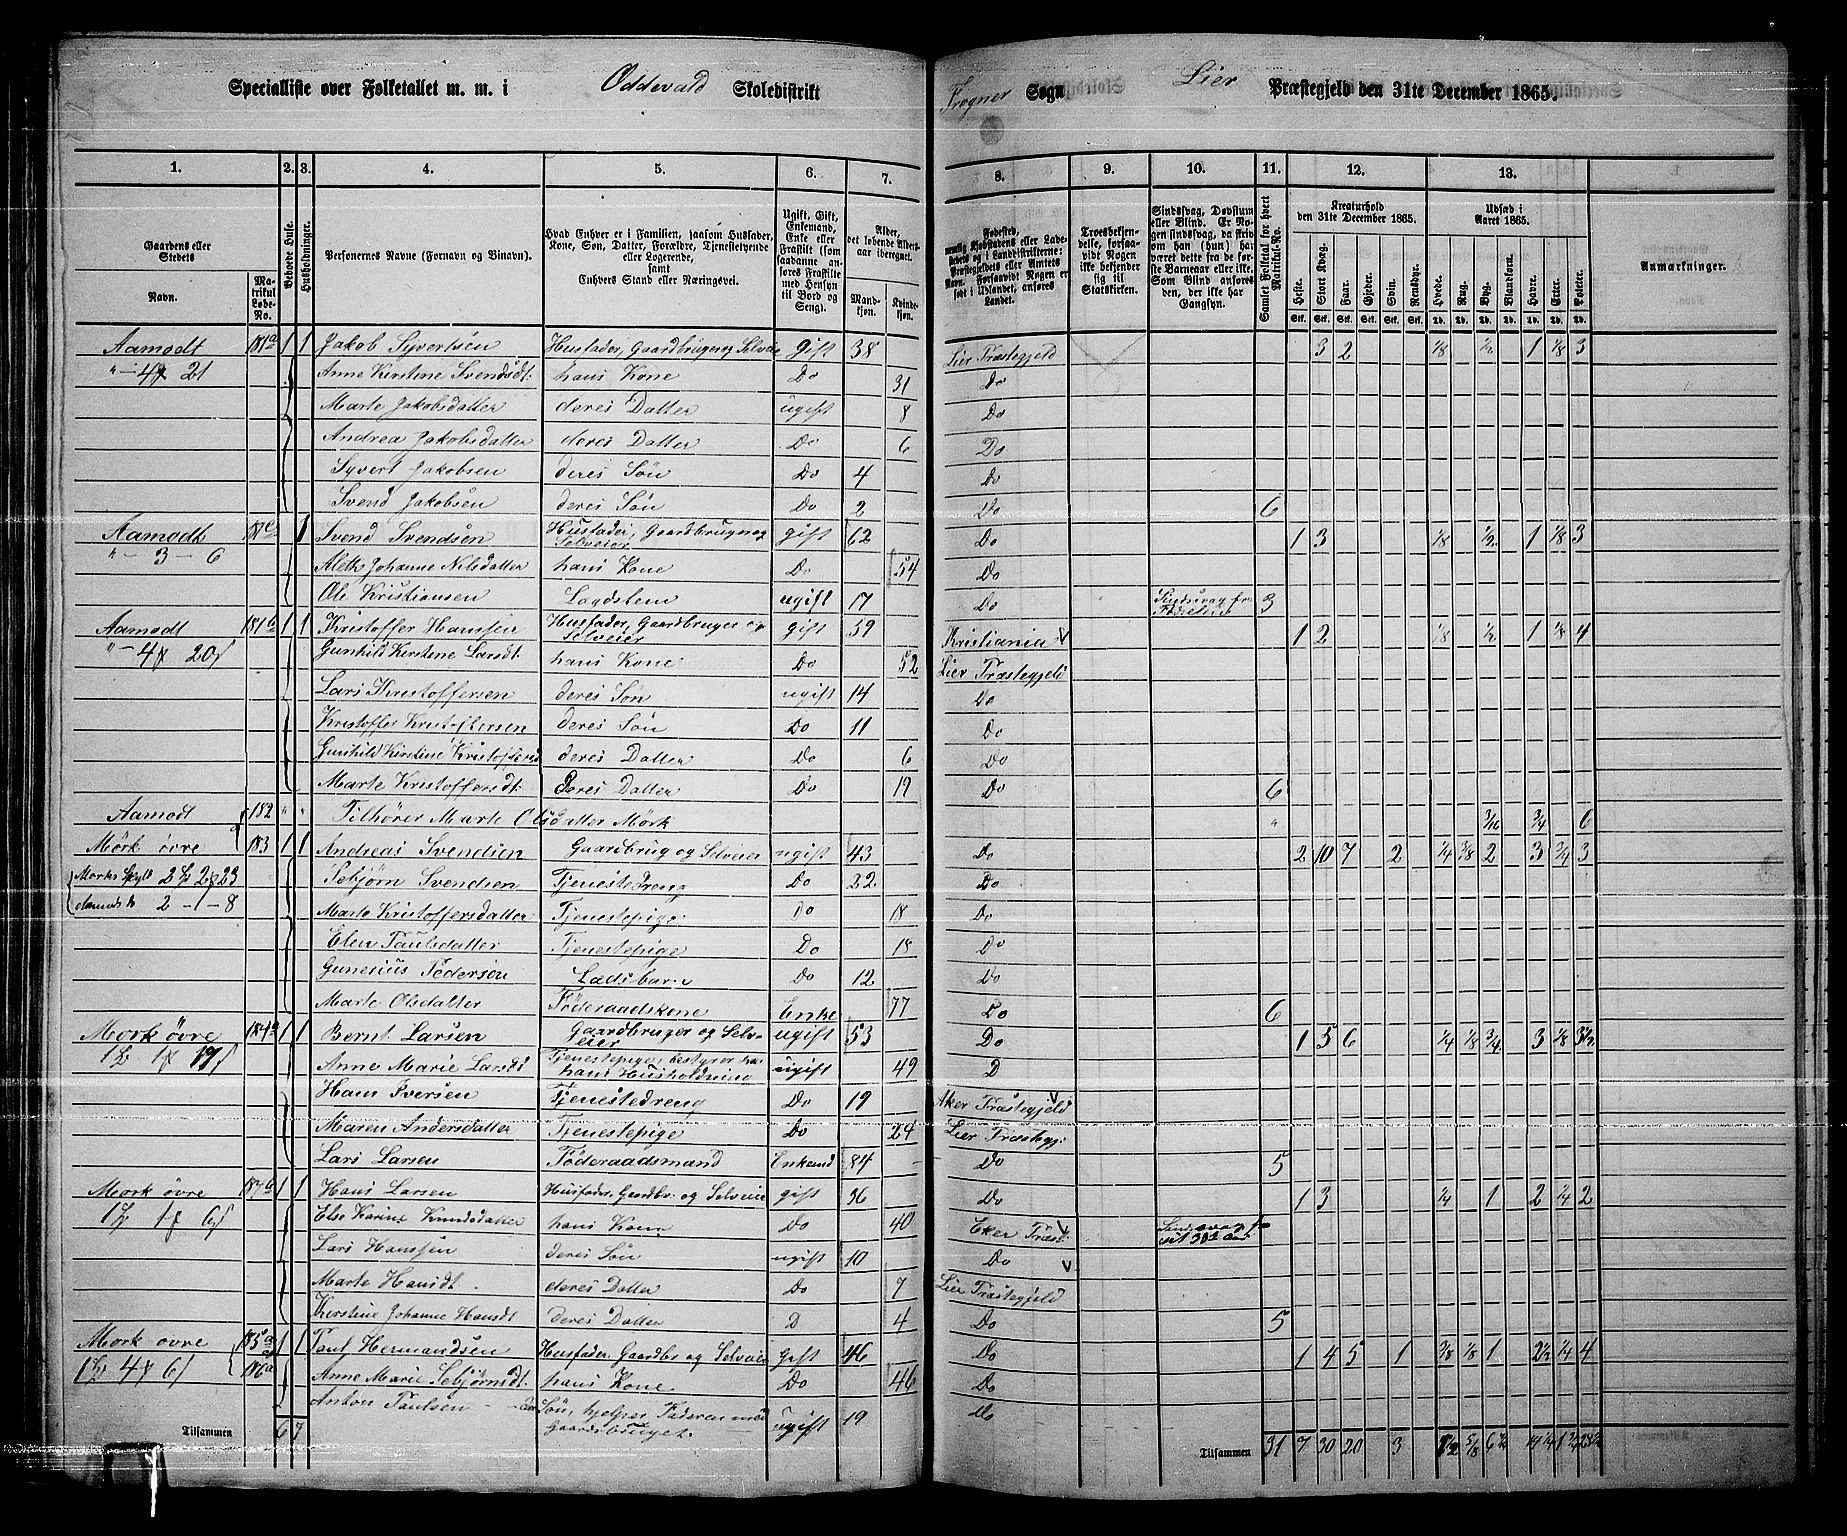 Specialliste over Folketallet m. m. i Oddevald Skoledistrikt Frogner Sogn Lier Præstegjeld den 31te December 1865.
1. 2. 3. 4. 5. 6. 7. 8. 9. 10. 11. 12. 13.
Gaardens eller Stedets Navn. Matrikul Løbe-No. Beboede Huse. Husholdninger. Personernes Navne (Fornavn og Binavn). Hvad Enhver er i Familien, saasom Husfader, Kone, Søn, Datter, Forældre, Tjenestetyende eller Logerende, samt Enhvers Stand eller Næringsvei. Ugift, Gift, Enkemand, Enke eller Fraskilt (som saadanne anføres Fraskilte med Hensyn til Bord og Seng). Alder, det løbende Aldersaar iberegnet. Mandkjøn. Kvindekjøn. Fødested, nemlig Kjøbstadens eller Ladestedets og i Landdistrikterne: Præstegjeldets eller Amtets Navn. Forsaavidt Nogen er født i Udlandet, anføres Landet. Troesbekjendelse, forsaavidt Nogen ikke bekjender sig til Statskirken. Sindssvag, Døvstum eller Blind. Er Nogen sindssvag, da skrives om han (hun) har været dette fra de første Barneaar eller ikke. Som Blind anføres den, der ikke har Gangsyn. Samlet Folketal for hvert Matrikul-No. Kreaturhold den 31te December 1865. Heste. Stort Kvæg. Faar. Gjeder. Svin. Rensdyr. Udsæd i Aaret 1865. Hvede. Rug. Byg. Blandkorn. Havre. Erter. Poteter. Anmærkninger.
Aamodt 181a 1 1 Jakob Syvertsen Husfader, Gaardbruger og Selveier Gift 38 Lier Præstegjeld 3 2 1/8 1/2 1 1/8 3
" - 4 21 Anne Kirstene Svendsdt: hans Kone Do 31 Do
Marte Jakobsdatter deres Datter ugift 8 Do
Andrea Jakobsdatter deres Datter Do 6 Do
Syvert Jakobsen deres Søn Do 4 Do
Svend Jakobsen deres Søn Do 2 Do 6
Aamodt 181c 1 Svend Svendsen Husfader, Gaardbruger og Selveier gift 62 Do 1 3 1/8 1/2 1 1/8 3
" - 3 - 6 Aleth Johanne Nilsdatter hans Kone Do 54 Do
Ole Kristiansen Lagdslem ugift 17 Do Sindsvag fra Fødselen 3
Aamodt 181b 1 1 Kristoffer Hansen Husfader, Gaardbruger og Selveier gift 59 Kristiania 1 2 1/8 1/2 1 1/8 4
" - 4 20 Gunhild Kirstene Larsdt. hans Kone Do 52 Lier Præstegjeld
Lars Kristoffersen deres Søn ugift 14 Do
Kristoffer Kristoffersen deres Søn Do 11 Do
Gunhild Kirstine Kristoffersd deres Datter Do 6 Do
Marte Kristoffersdt. Deres Datter Do 19 Do 6
Aamodt 182 " " Tilhører Marte Olsdatter Mørk " 3/16 3/4 6
Mørk øvre 183 1 1 Andreas Svendsen Gaardbrug og Selveier ugift 43 Do 2 10 7 2 1/4 3/8 2 3 3/4 3
Mørks Skyld 2 2 23 Tobjørn Svendsen Tjenestedreng Do 22 Do
Aamodts 2 - 1 - 8 Marte Kristoffersdatter Tjenestepige Do 18 Do
Elen Paulsdatter Tjenestepige Do 18 Do
Gunerius Pedersen Do 12 Do
Marte Olsdatter Føderaadskone Enke 77 Do 6
Mørk øvre 184a 1 1 Bernt Larsen Gaardbruger og Selveier ugift 53 Do 1 5 6 1/4 1/8 3/4 3 1/8 3 1/2
1 1 17 Anne Marie Larsdt Tjenestepige, bestyrer hans Husholdning ugift 49 D
Hans Iversen Tjenestedreng Do 19 Aker Præstegjeld
Maren Andersdatter Tjenestepige Do 24 Lier Præstegj:
Lars Larsen Føderaadsmand Enkemd 84 Do 5
Mørk øvre 184b 1 1 Hans Larsen Husfader, Gaardbr. og Selveier gift 36 Do 1 3 1/4 1 2 1/4 2
1 1 6 Else Karine Knudsdatter hans Kone Do 40 Eker Præst:
Lars Hanssen deres Søn ugift 10 Do
Marte Hansdt. deres Datter Do 7 Lier Præstegjeld
Kirstine Johanne Hansdt Deres Datter D 4 Do 5
Mørk øvre 185a 1 1 Paul Hermandsen Husfader, Gaardbr og Selveier Gift 46 Do 1 4 5 1 3/8 1/8 1 2 1/2 1/4 4
1 4 6 186a Anne Marie Tobjørnsdt. hans Kone Do 46 Do
Anton Paulsen Søn, hjelper Faderen med Gaardsbruget. ugift 19 Do
Tilsammen 6 7 Tilsammen 31 7 30 20 3 5/8 6 1/2 14 1/4